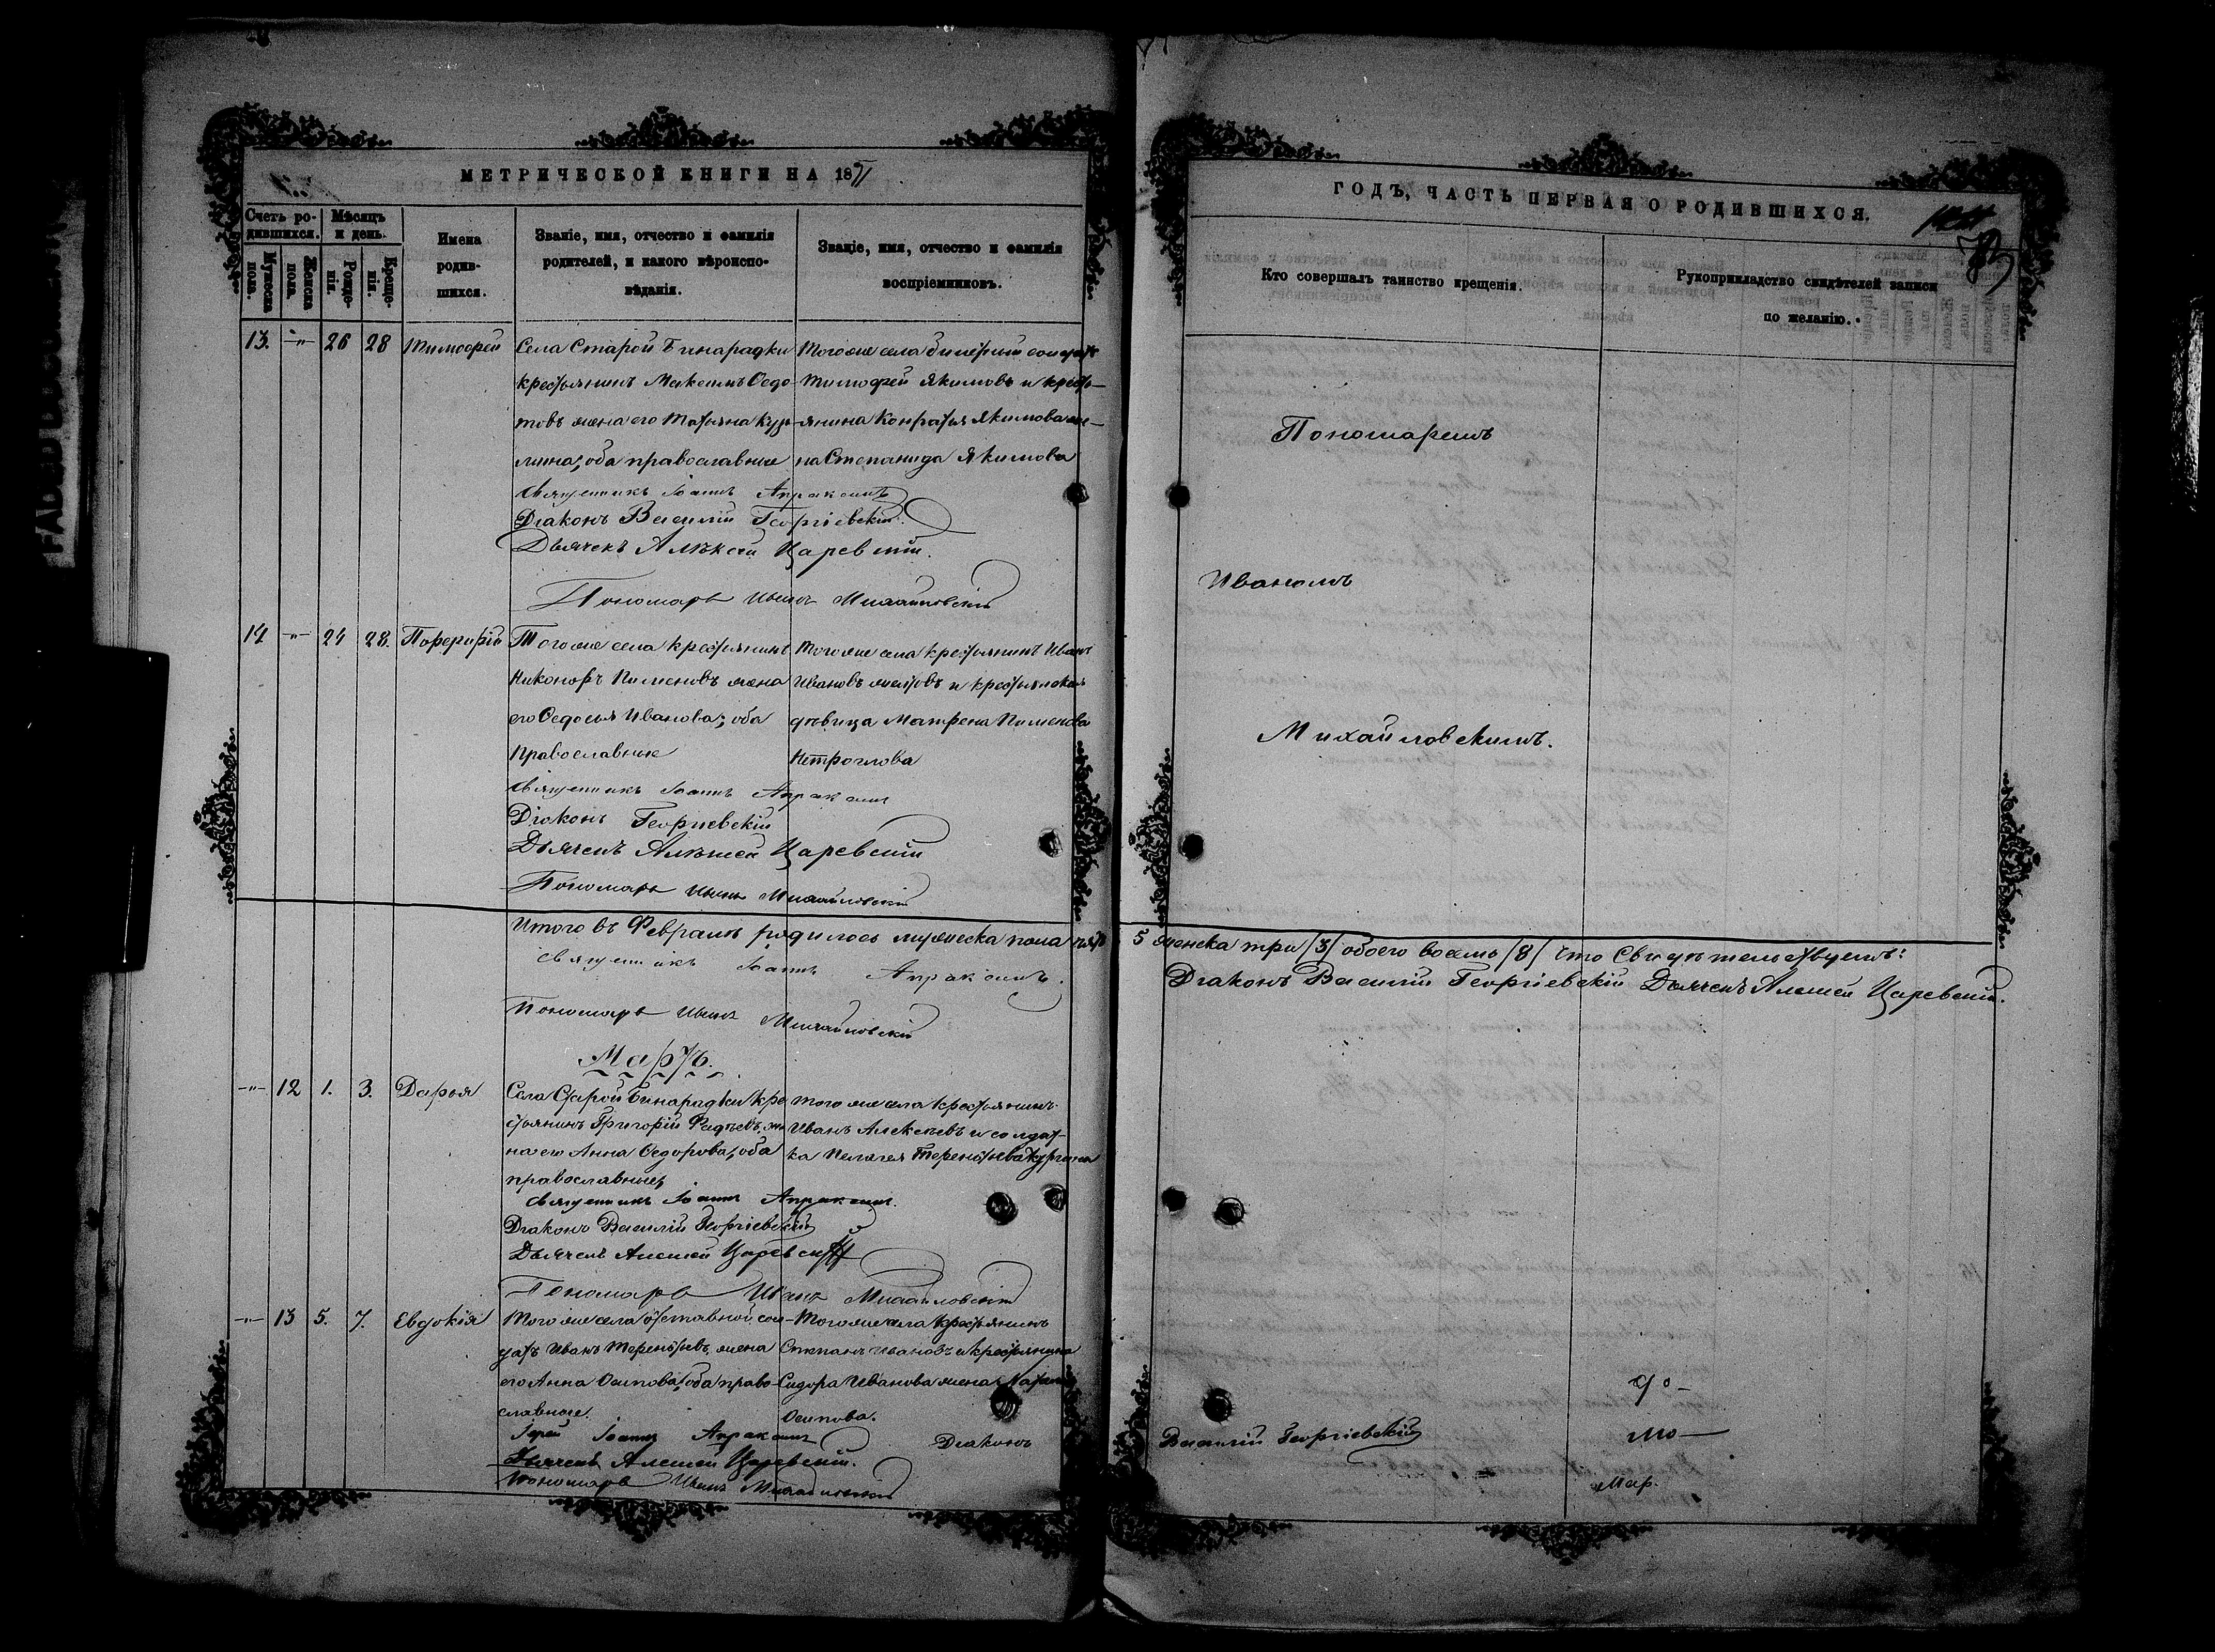 МЕТРИЧЕСКОЙ КНИГИ НА 1871
Счетъ ро-
дившихся.
Мѣсяцъ
и день.
Мужеска
пола.
Женска
пола.
Рожде-
нія.
Креще-
нія.
Имена
родив-
шихся.
Званіе, имя, отчество и фамилія
родителей, и какого вѣроиспо-
вѣданія.
Званіе, имя, отчество и фамилія
воспріемниковъ.
13. -"- 26 28 Тимофей
Села Старой Бинарадки
крестьянинъ Максимъ Ѳедо-
товъ жена его Татьяна Кузь-
мина, оба православные
Тогоже села билетный солдатъ
Тимофей Якимовъ и кресть-
янина Конратья Якимова же-
на Степанида Якимова
Священникъ Іоаннъ Апраксинъ
Діаконъ Василій Георгіевскій.
Дьячекъ Алѣксѣй Царевскій.
Пономарь Иванъ Михайловскій
14 -"- 24 28. Порфирій
Тогоже села крестьянинъ
Никоноръ Пименовъ жена
его Ѳедосья Иванова; оба
Православные
Тогоже села крестьянинъ Иванъ
Ивановъ и крестьянская
дѣвица Матрена Пименова
Священникъ Іоаннъ Апраксинъ
Діаконъ Георгіевскій
Дьячекъ Алѣксей Царевскій
Пономарь Иванъ Михайловскій
Итого въ Февралѣ родилось мужеска пола пять
Священникъ Іоаннъ Апраксинъ.
Пономарь Иванъ Михайловскій
Мартъ.
-"- 12 1. 3. Дарья
Села Старой Бинарадки кре
стьянинъ Григорій Фадѣевъ, же
на его Анна Ѳедорова, оба
православные,
того же села крестьянинъ
Иванъ Алексѣевъ и солдат-
ка Пелагея Терентьева
Священникъ Іоаннъ Апраксинъ.
Діаконъ Василій Георгіевскій
Дьячекъ Алексей Царевскій
Пономарь Иванъ Михайловскій
-"- 13 5. 7. Евдокія
Тогоже села отставной сол-
датъ Иванъ Терентьевъ, жена
его Анна Осипова, оба право-
славные.
Тогоже села крестьянинъ
Степанъ Ивановъ и крестьянина
Сидора Иванова жена
Осипова.
Іерей Іоаннъ Апраксинъ
Діаконъ
Дьячекъ Алексей Царевскій.
Пономарь Иванъ Михайловскій
ГОДЪ, ЧАСТЬ ПЕРВАЯ О РОДИВШИХСЯ.
Кто совершалъ таинство крещенія.
Рукоприкладство свидѣтелей записи
по желанію.
Пономаремъ
Иваномъ
Михайловскимъ.
5 женска три /3/ обоего восемь /8/ что свидѣтельствуемъ:
Діаконъ Василій Георгіевскій Дьячекъ Алексей Царевскій.
Василій Георгіевскій